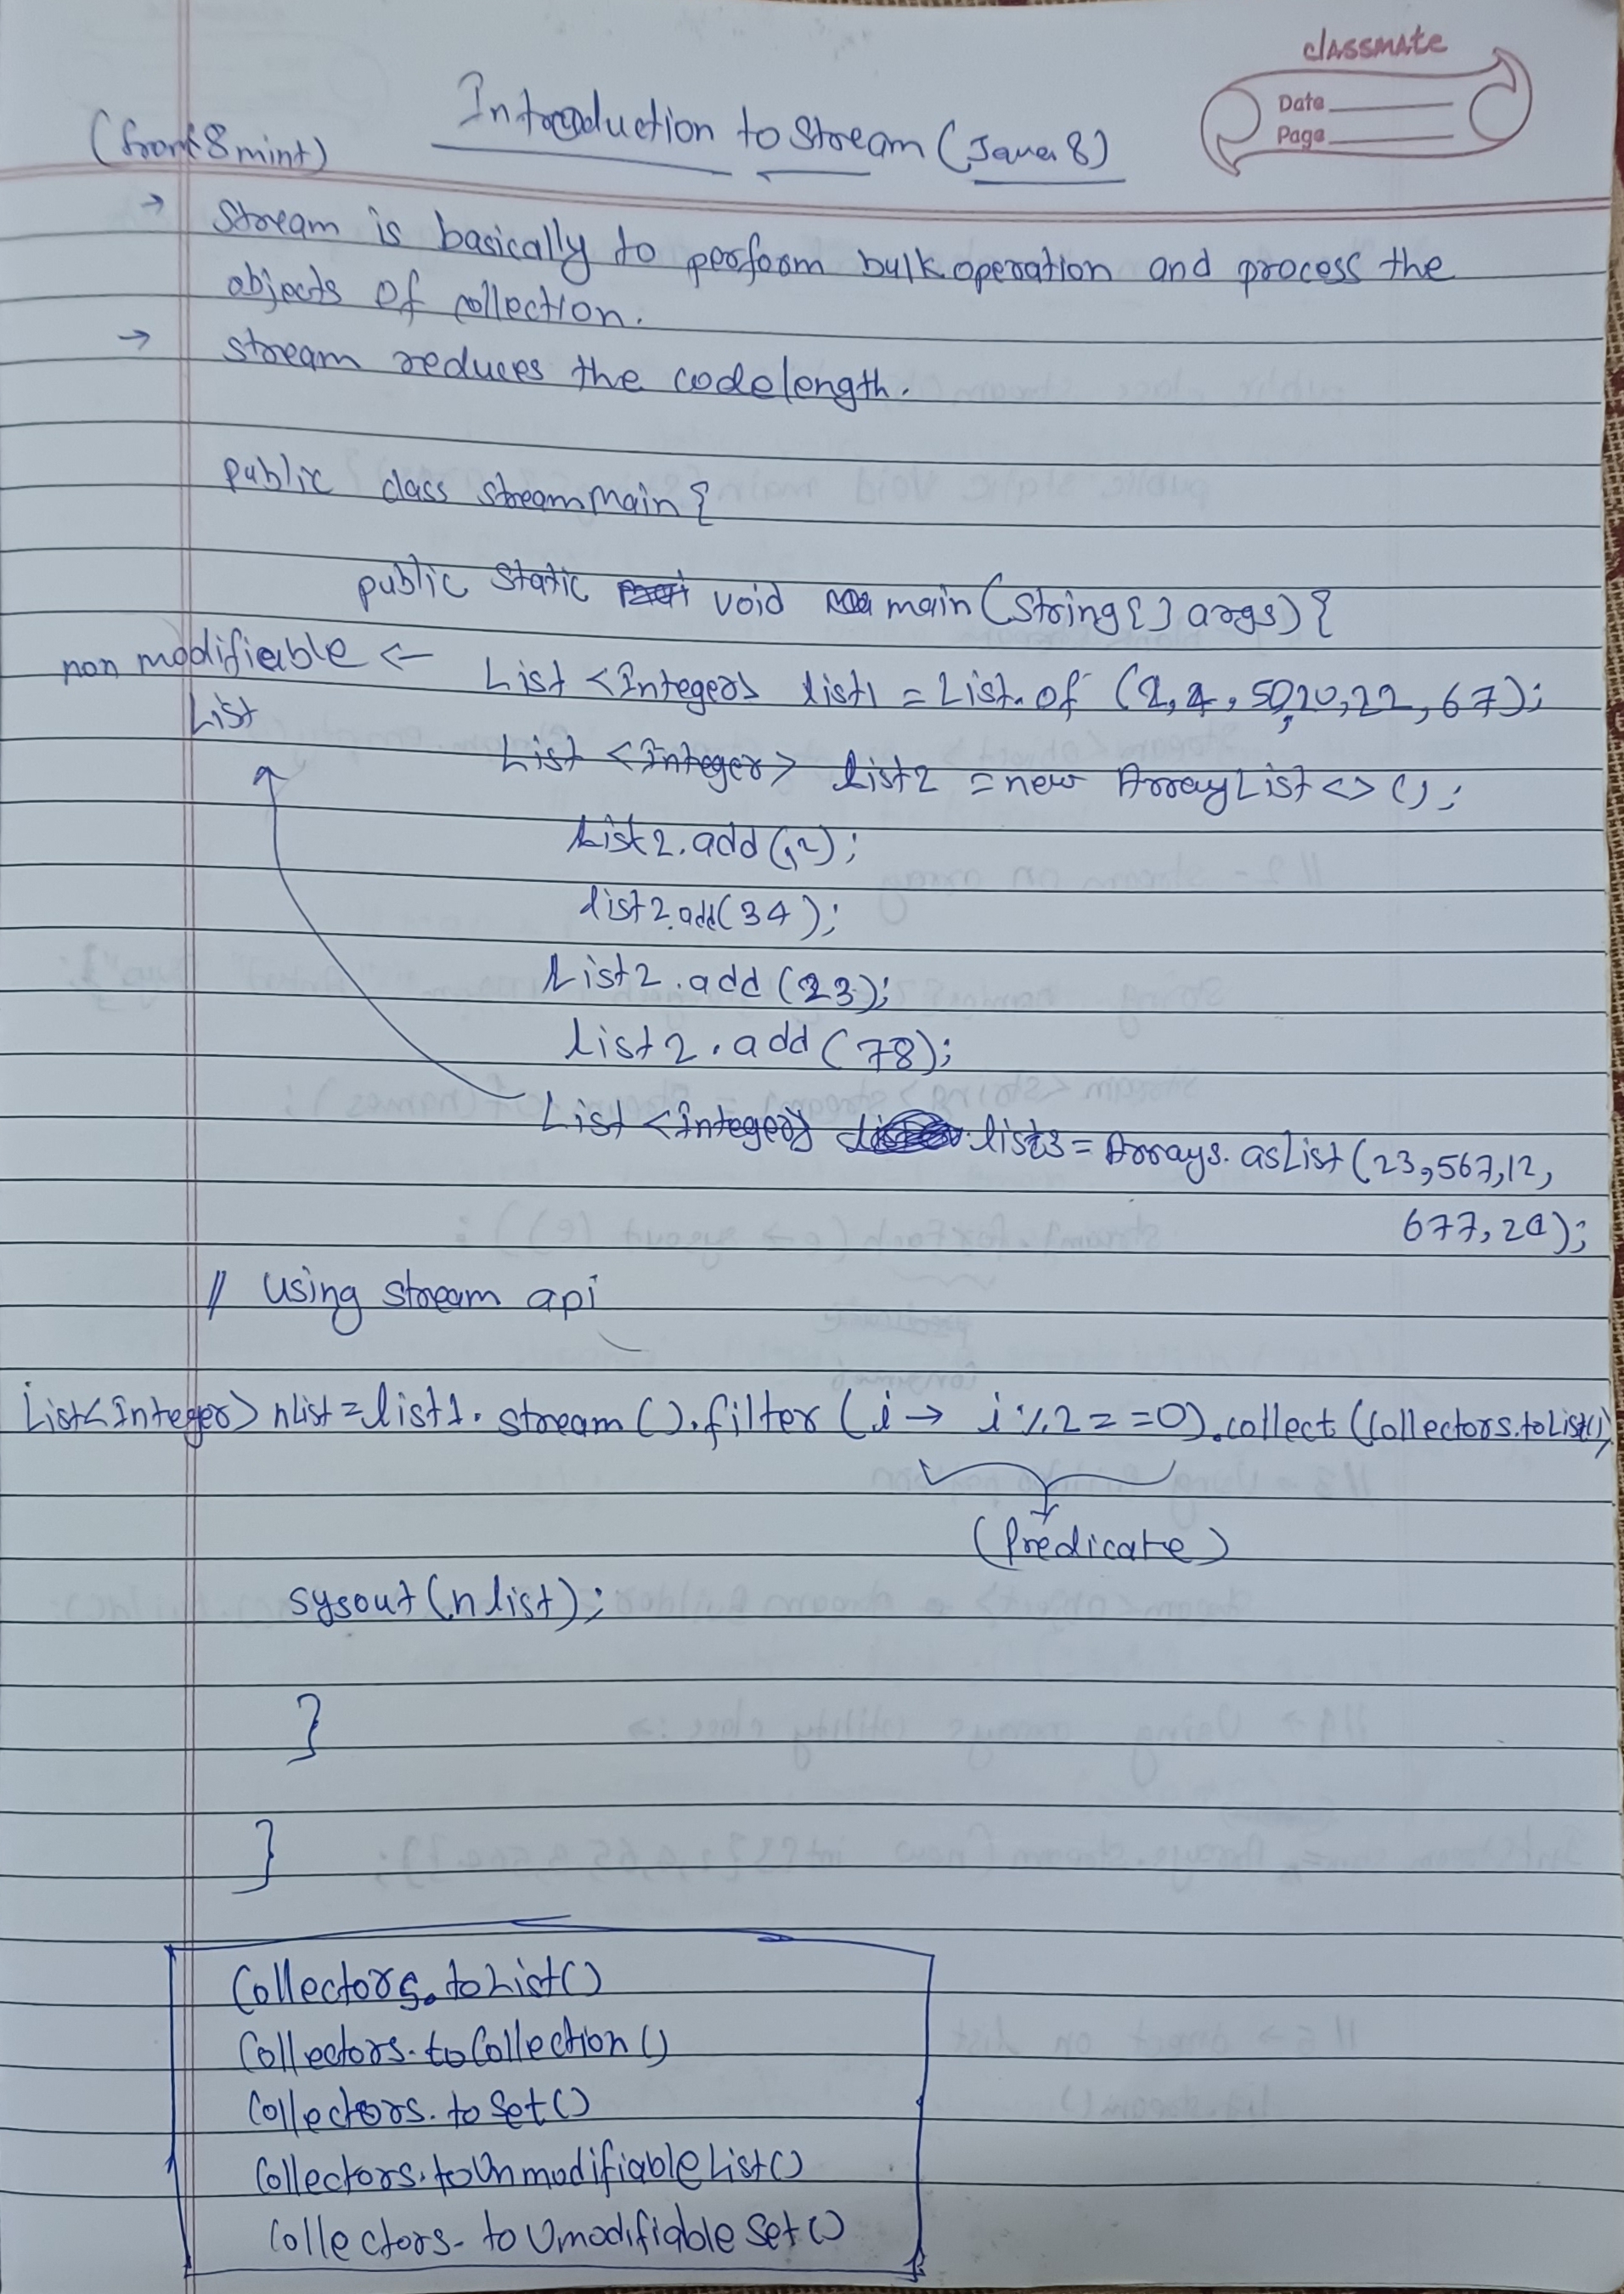 classmate
Date
Page
Introduction to Stream (Java 8)
(from 8 mint)
→ Stream is basically to perform bulk operation and process the
objects of collection.
→ stream reduces the code length.
public class streamMain {
public static void main(String[] args) {
non modifiable ← List <Integer> list1 = List.of (2, 4, 50, 20, 22, 67);
List
List <Integer> list2 = new ArrayList <> ();
list2.add(12);
list2.add(34);
list2.add(23);
list2.add(78);
List <Integer> list3 = Arrays.asList(23, 567, 12,
677, 21);
// Using stream api
List<Integer> nlist = list1.stream().filter(i → i%2==0).collect(Collectors.toList()
(Predicate)
sysout(nlist);
}
}
Collectors.toList()
Collectors.toCollection()
Collectors.toSet()
Collectors.toUnmodifiableList()
Collectors.toUmodifiableSet()